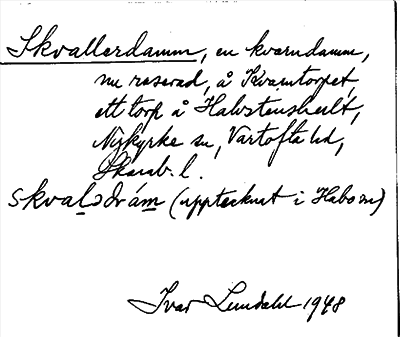 Skvallerdamm, en kvarndamm,
nu raserad, å Kvarntorpet,
ett torp å Habstenshult,
Nykyrke sn, Vartofta hd,
Skarab. l.
skvalədrám (upptecknat i Habo sn)
Ivar Lundahl 1948